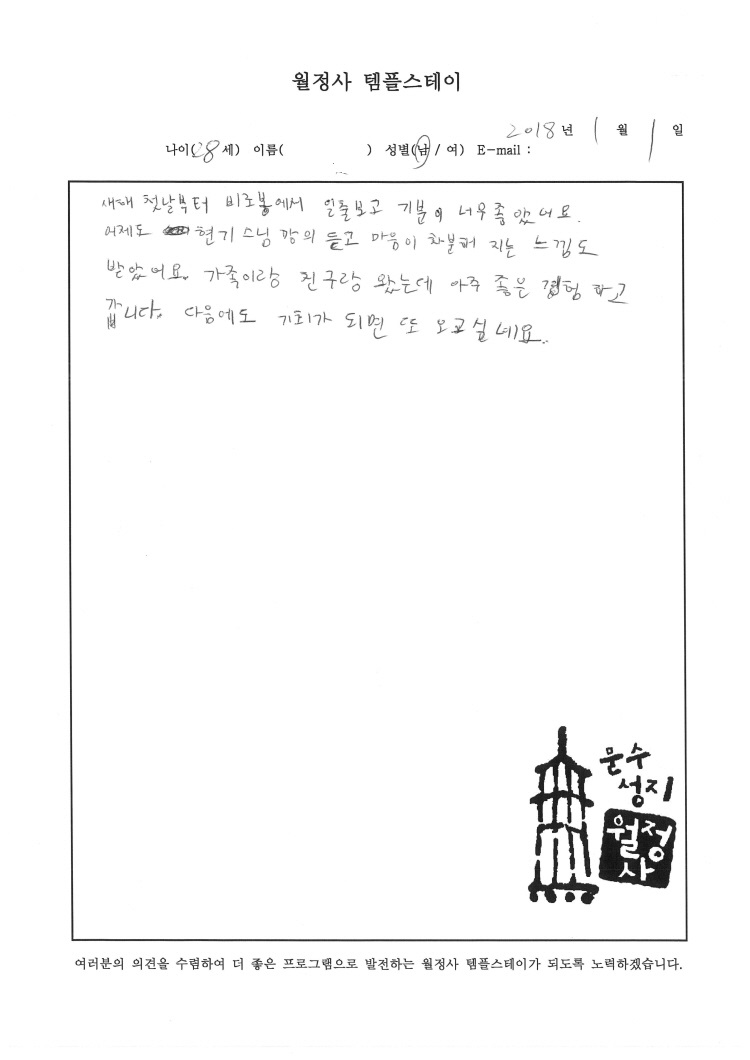 월정사 템플스테이
2018 년 1 월 1 일
나이(28 세) 이름( ) 성별(남 / 여) E-mail :
새해 첫날부터 비로봉에서 일출보고 기분이 너무좋았어요.
어제도 현기스님 강의 듣고 마음이 차분해 지는 느낌도
받았어요. 가족이랑 친구랑 왔는데 아주 좋은 경험 하고
갑니다. 다음에도 기회가 되면 또 오고싶네요..
문수
성지
월정
사
여러분의 의견을 수렴하여 더 좋은 프로그램으로 발전하는 월정사 템플스테이가 되도록 노력하겠습니다.